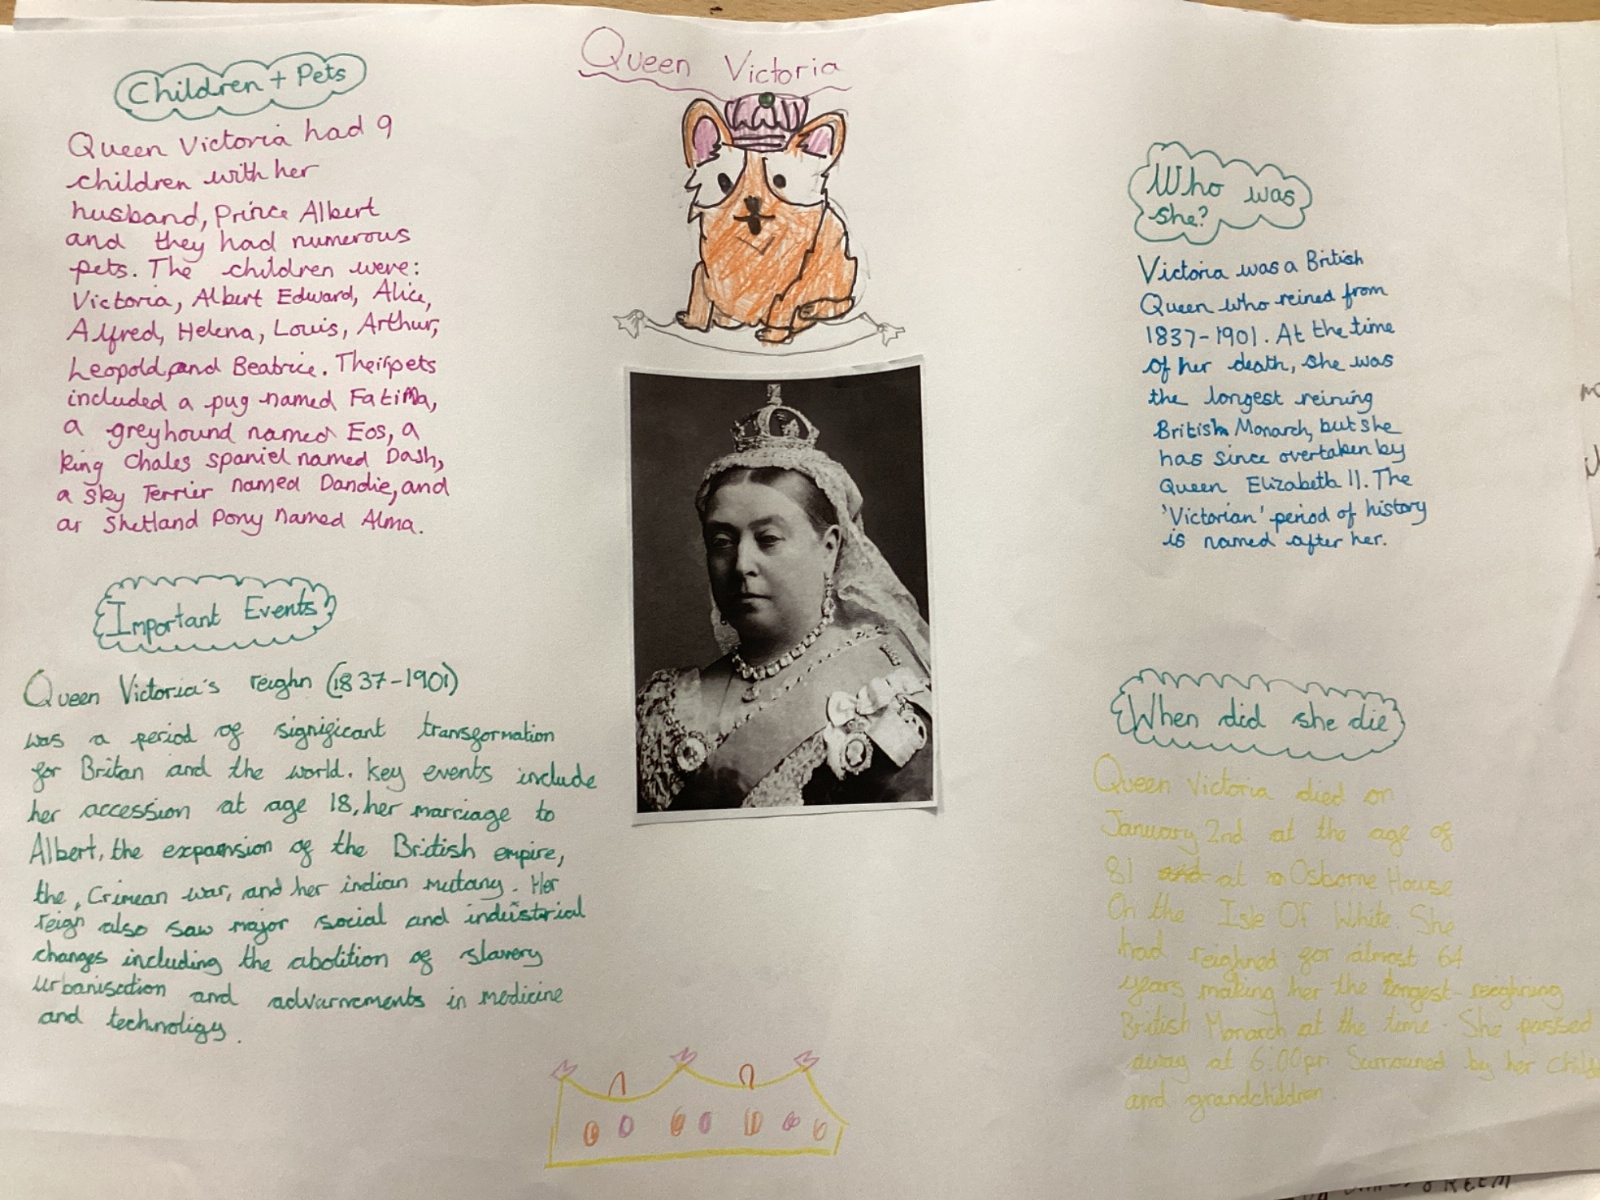 Queen Victoria
Children + Pets
Queen Victoria had 9
children with her
husband, Prince Albert
and they had numerous
pets. The children were:
Victoria, Albert Edward, Alice,
Alfred, Helena, Louis, Arthur,
Leopold, and Beatrice. Their pets
included a pug named Fatima,
a greyhound named Eos, a
king Chales spaniel named Dash,
a sky Terrier named Dandie, and
a Shetland Pony named Alma.
Important Events
Queen Victoria's reighn (1837-1901)
was a period of significant transformation
for Britan and the world. Key events include
her accession at age 18, her marriage to
Albert, the expansion of the British empire,
the Crimean war, and her indian mutany. Her
reign also saw major social and industrial
changes including the abolition of slavery
urbanisation and advarnements in medicine
and technoligy.
Who was
she?
Victoria was a British
Queen who reined from
1837-1901. At the time
of her death, she was
the longest reining
British Monarch, but she
has since overtaken by
Queen Elizabeth II. The
'Victorian' period of history
is named after her.
When did she die
Queen Victoria died on
January 2nd at the age of
81 and at Osborne House
On the Isle Of White. She
had reighned for almost 64
years making her the longest reighning
British Monarch at the time. She passed
away at 6:00pm Surrouned by her child
and grandchildren